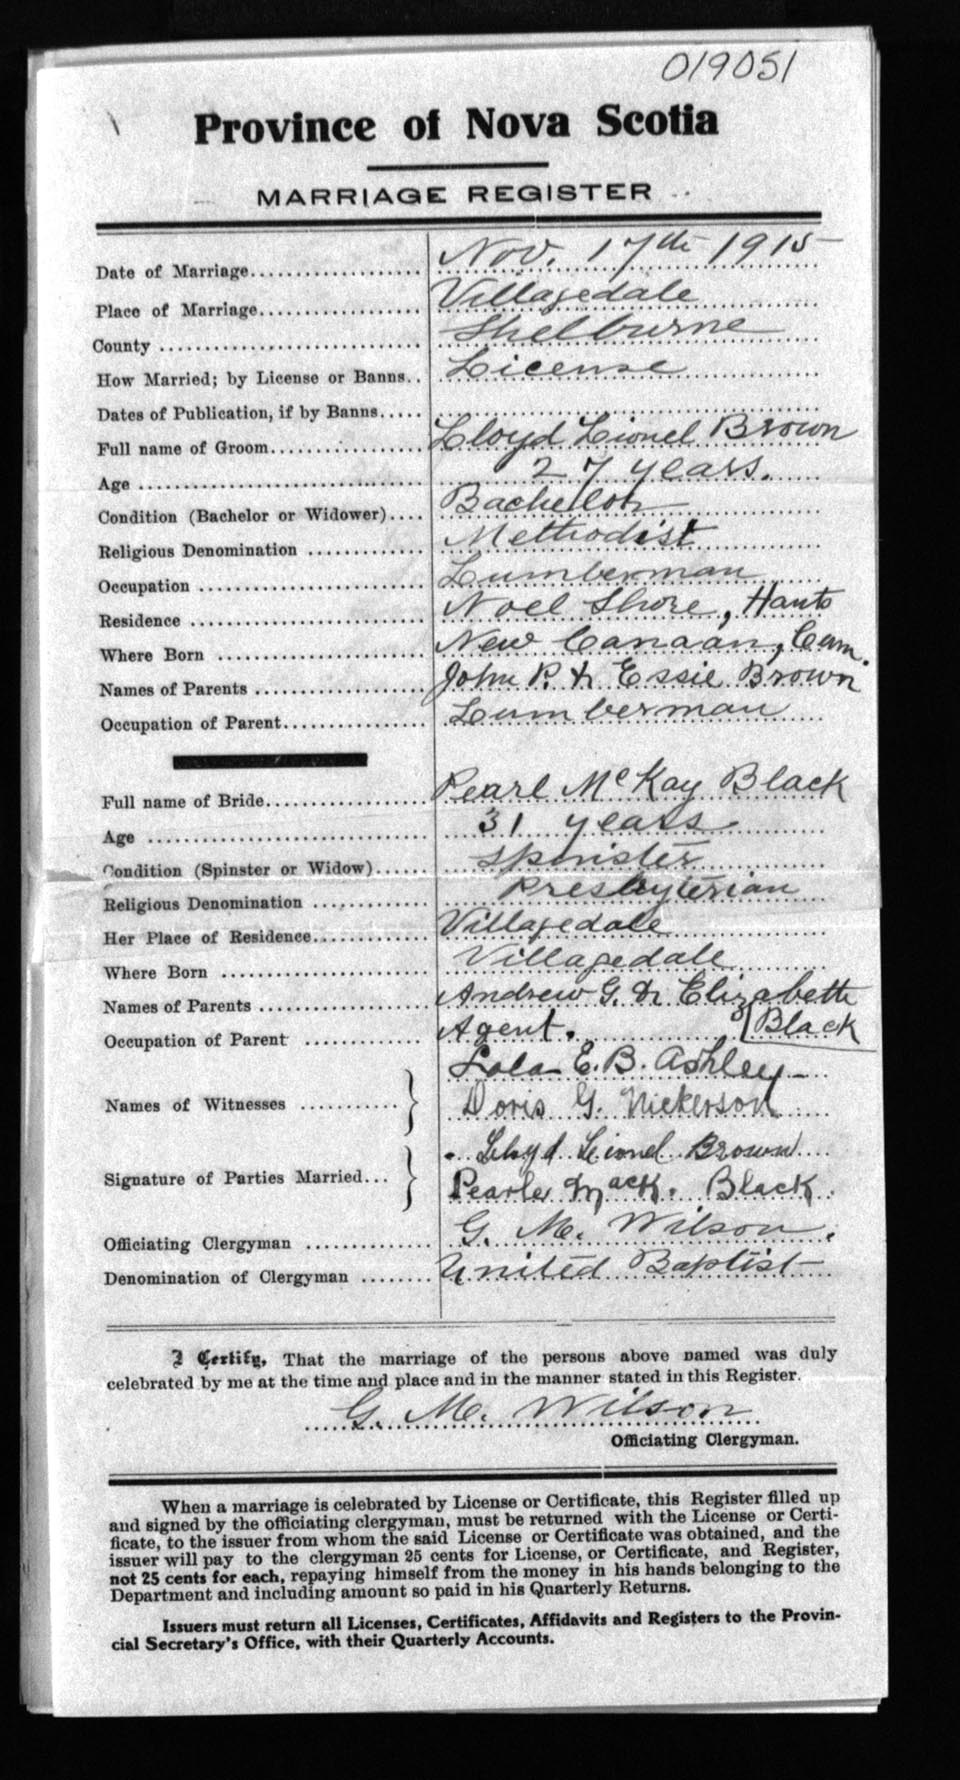 019051
Province of Nova Scotia
MARRIAGE REGISTER
Date of Marriage.................... Nov. 17th 1915
Place of Marriage................... Villagedale
County .............................. Shelburne
How Married; by License or Banns.. License
Dates of Publication, if by Banns.....
Full name of Groom.................. Lloyd Lionel Brown
Age .................................. 27 years.
Condition (Bachelor or Widower).... Bachelor
Religious Denomination ............. Methodist
Occupation .......................... Lumberman
Residence ........................... Noel Shore, Hants
Where Born ......................... New Canaan, Cum.
Names of Parents .................... John P. & Essie Brown
Occupation of Parent................ Lumberman
Full name of Bride................... Pearl McKay Black
Age .................................. 31 years
Condition (Spinster or Widow)...... Spinster
Religious Denomination ............. Presbyterian
Her Place of Residence............. Villagedale
Where Born ......................... Villagedale
Names of Parents .................... Andrew G. & Elizabeth
Occupation of Parent ............... Agent. Black
Names of Witnesses ........... } Lola E. B. Ashley
Doris G. Nickerson
Signature of Parties Married... } Lloyd Lionel Brown
Pearle Mack. Black.
Officiating Clergyman ............... G. M. Wilson.
Denomination of Clergyman ........ United Baptist
I Certify, That the marriage of the persons above named was duly
celebrated by me at the time and place and in the manner stated in this Register.
G. M. Wilson
Officiating Clergyman.
When a marriage is celebrated by License or Certificate, this Register filled up
and signed by the officiating clergyman, must be returned with the License or Certi-
ficate, to the issuer from whom the said License or Certificate was obtained, and the
issuer will pay to the clergyman 25 cents for License, or Certificate, and Register,
not 25 cents for each, repaying himself from the money in his hands belonging to the
Department and including amount so paid in his Quarterly Returns.
Issuers must return all Licenses, Certificates, Affidavits and Registers to the Provin-
cial Secretary's Office, with their Quarterly Accounts.